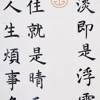 淡即是浮雲
住就是晴
人生煩事